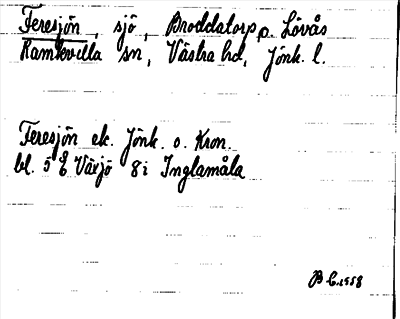 Feresjön, sjö, Broddatorp o. Lövås
Ramkvilla sn, Västra hd, Jönk. l.
Feresjön ek. Jönk. o. Kron.
bl. 5 E Växjö 8i Inglamåla
B C. 1958